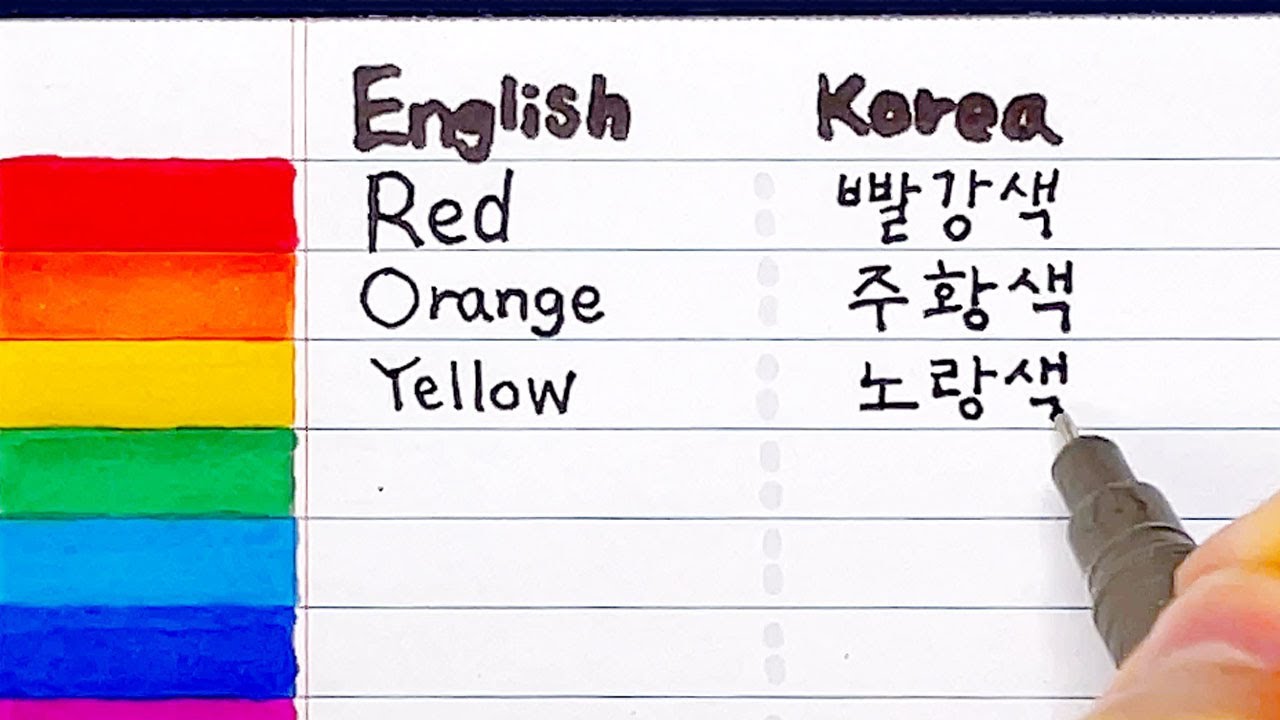 English Korea
Red 빨강색
Orange 주황색
Yellow 노랑색